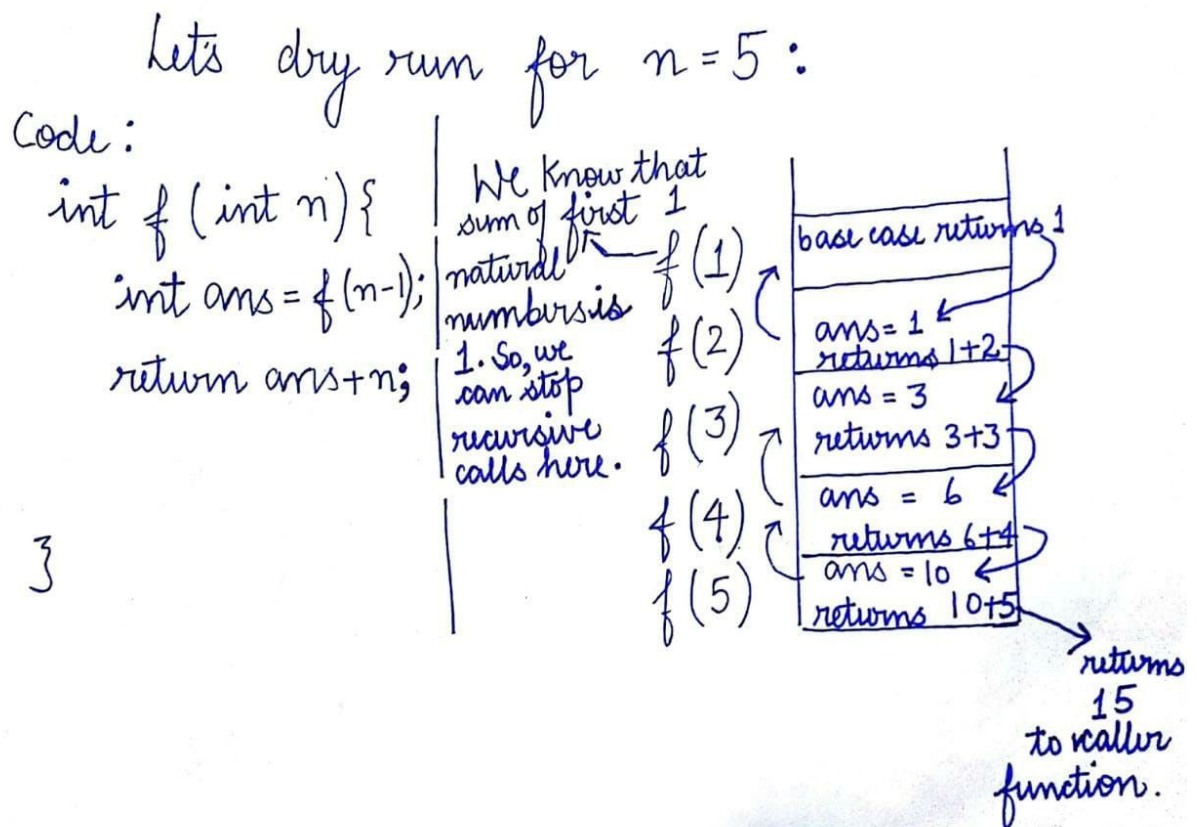 Let's dry run for n = 5 :
Code :
int f (int n) {
int ans = f (n-1);
return ans+n;
}
We know that
sum of first 1
natural
numbers is
1. So, we
can stop
recursive
calls here.
f (1)
f (2)
f (3)
f (4)
f (5)
base case returns 1
ans = 1
returns 1+2
ans = 3
returns 3+3
ans = 6
returns 6+4
ans = 10
returns 10+5
returns
15
to caller
function.